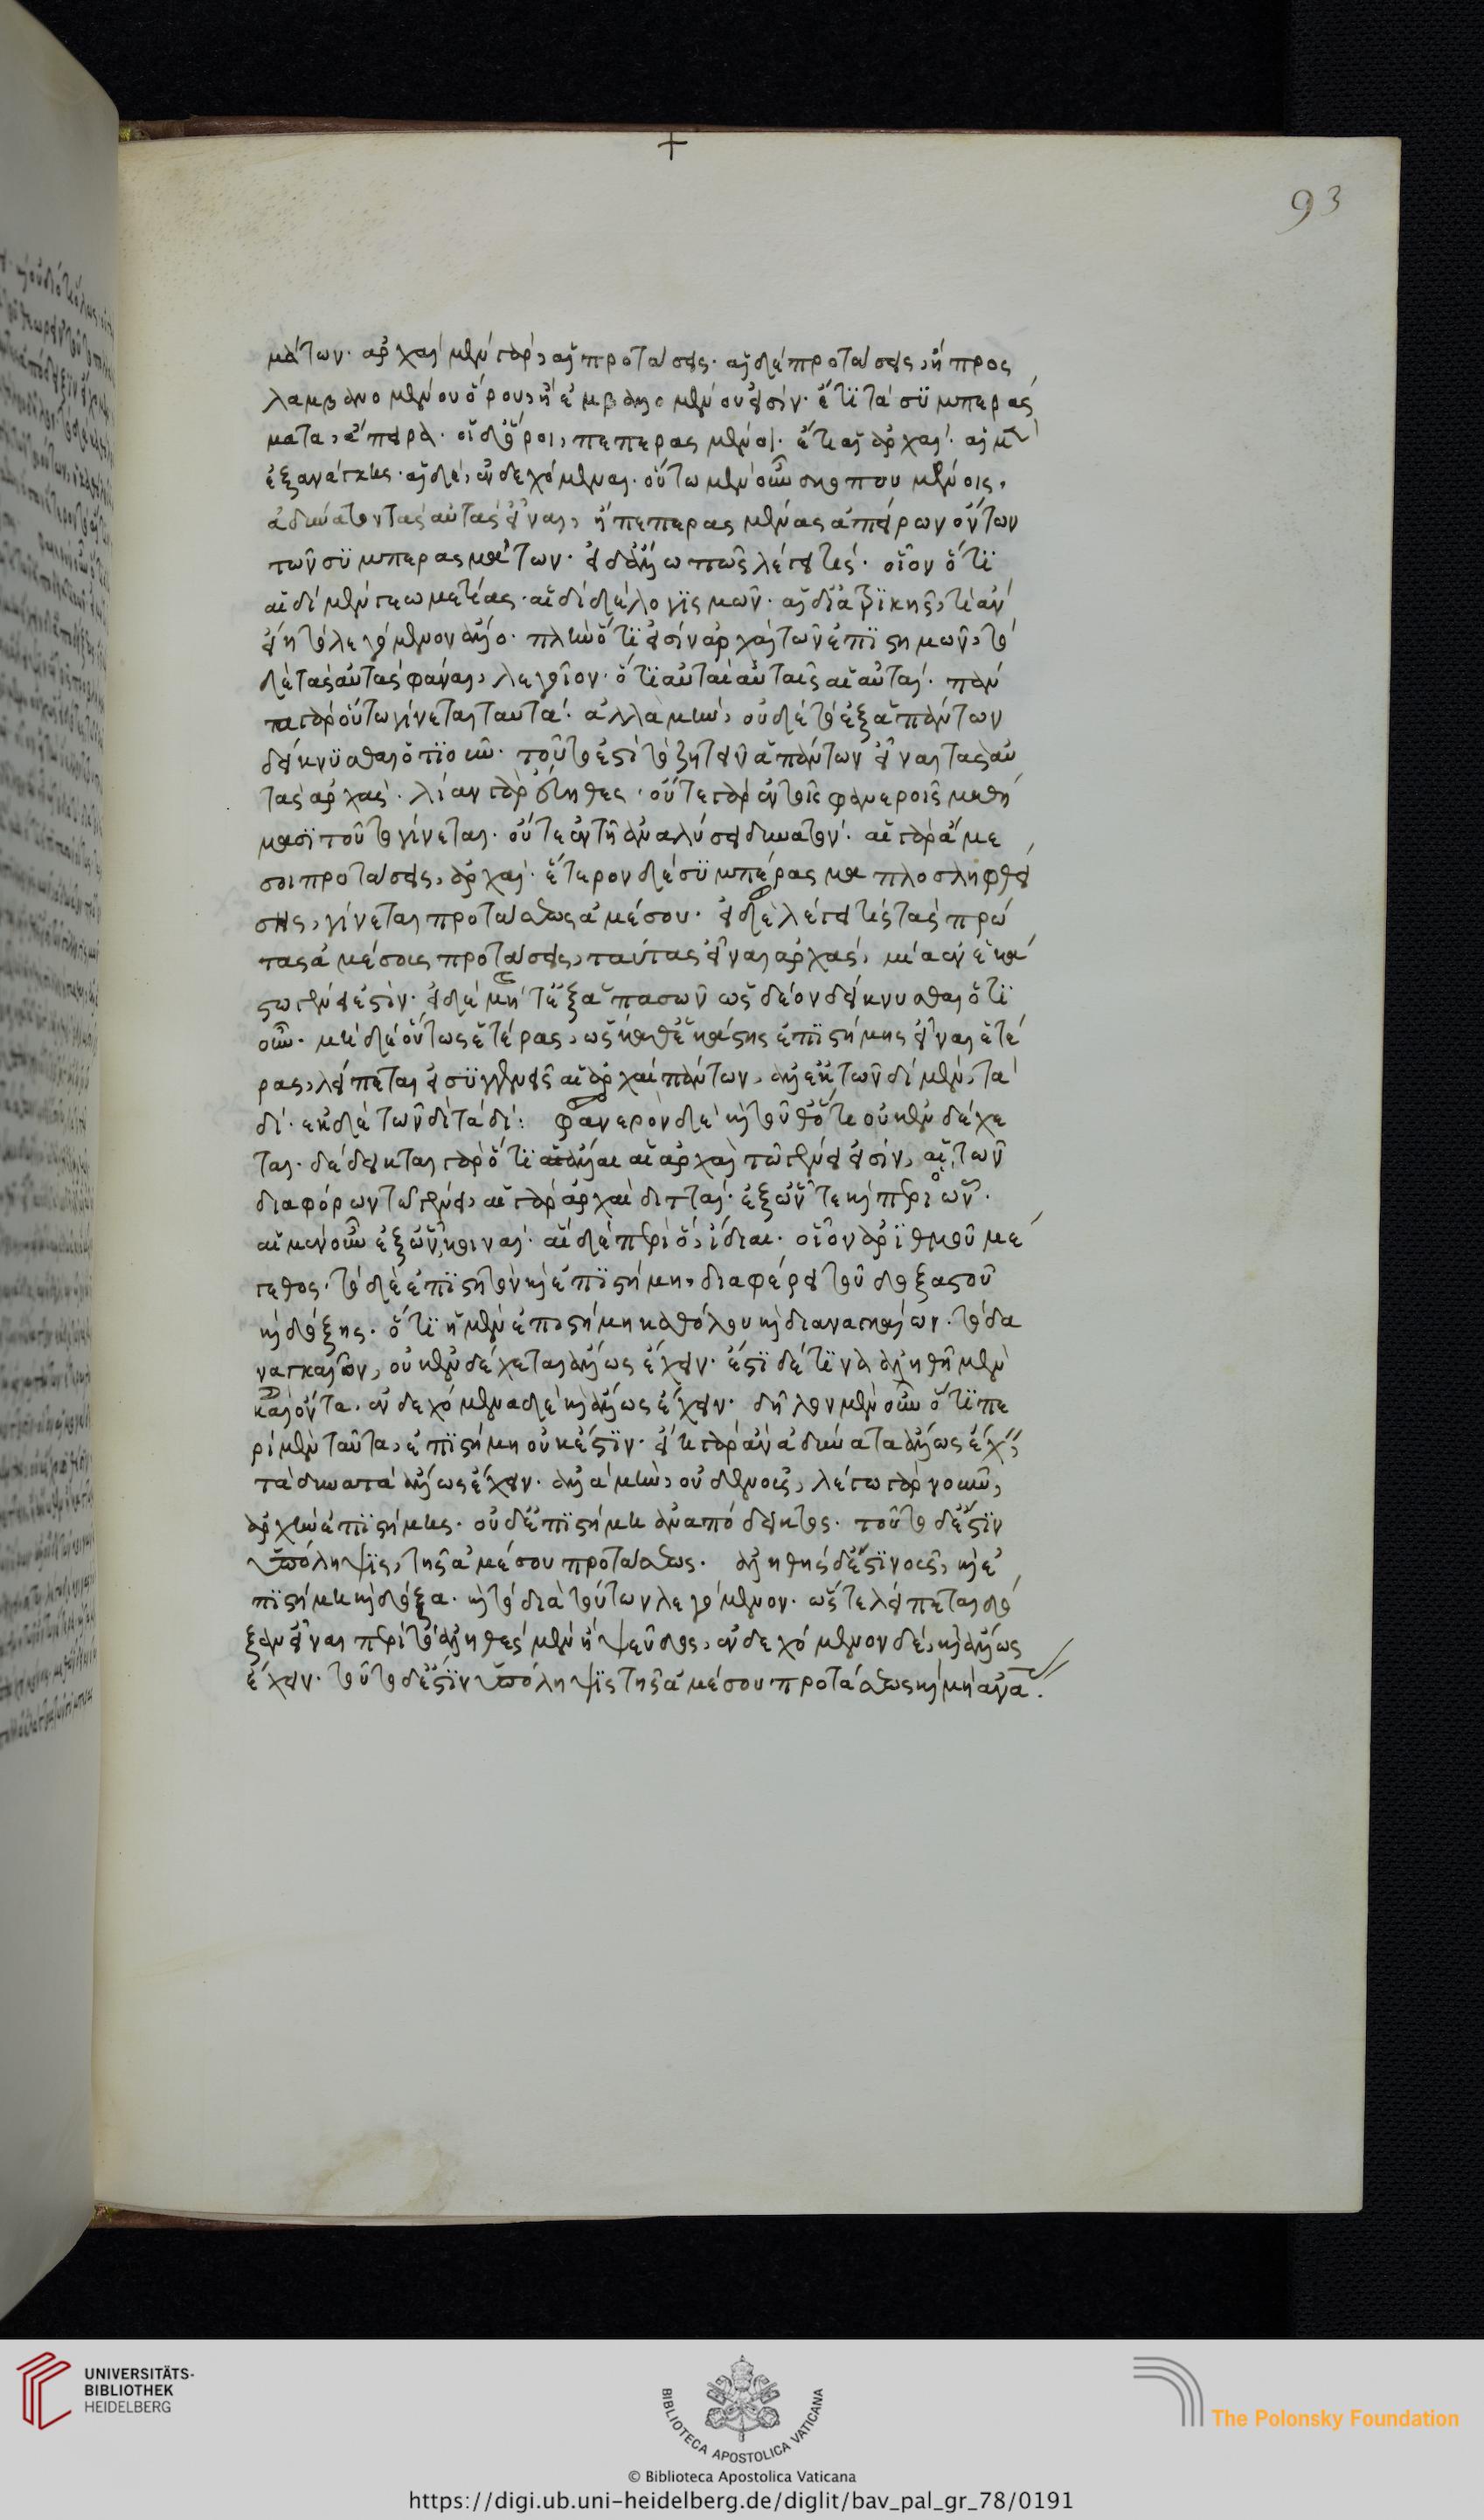 +
93
μάτων· ἀρχαὶ μὲν γὰρ, αἱ προτάσεις· αἱ δὲ προτάσεις, ἢ προς
λαμβανομένου ὅρου, ἢ ἐμβαλλομένου εἰσίν· ἔτι τὰ συμπεράσ
ματα, ἄπειρα· οἱ δ' ὅροι, πεπερασμένοι· ἔτι αἱ ἀρχαὶ· αἱ μὲν
ἐξ ἀνάγκης· αἱ δὲ, ἐνδεχόμεναι· οὕτω μὲν οὖν σκοπουμένοις,
ἀδύνατον τὰς αὐτὰς εἶναι, ἢ πεπερασμένας ἀπείρων ὄντων
τῶν συμπερασμάτων· εἰ δ' ἄλλως πως λέγει τίς· οἷον ὅτι
αἱ δὶ μὲν γεωμετρίας· αἱ δὶ δὲ λογισμῶν· αἱ δὶ ἰατρικῆς, τί ἂν
εἴη τὸ λεγόμενον ἄλλο· πλὴν ὅτι εἰσὶν ἀρχαὶ τῶν ἐπιστημῶν, τὸ
δὲ τὰς αὐτὰς φάναι, γελοῖον· ὅτι αὐταὶ αὑταῖς αἱ αὐταί· πάν
τα γὰρ οὕτω γίνεται ταυτά· ἀλλὰ μὴν, οὐδὲ τὸ ἐξ ἁπάντων
δείκνυσθαι ὁτιοῦν· τοῦτό ἐστι τὸ ζητεῖν ἁπάντων εἶναι τὰς αὐ
τὰς ἀρχὰς· λίαν γὰρ εὔηθες· οὔτε γὰρ ἐν τοῖς φανεροῖς μαθή
μασι τοῦτο γίνεται· οὔτε ἐν τῇ ἀναλύσει δυνατόν· αἱ γὰρ ἄμε
σοι προτάσεις, ἀρχαί· ἕτερον δὲ συμπέρασμα προσληφθεί
σης, γίνεται προτάσεως ἀμέσου· εἰ δὲ λέγει τίς τὰς πρώ
τας ἀμέσους προτάσεις, ταύτας εἶναι ἀρχάς, μία ἐν ἑκά
στῳ γένει ἐστίν· εἰ δὲ μήτε ἐξ ἁπασῶν ὡς δέον δείκνυσθαι ὁτι
οῦν· μὴ δὲ οὕτως ἑτέρας, ὡς καθ' ἑκάστης ἐπιστήμης εἶναι ἑτέ
ρας, λείπεται εἰ συγγενεῖς αἱ ἀρχαὶ πάντων, ἀλλ' ἐκ τῶν δὶ μὲν, τὰ
δί· ἐκ δὲ τῶν δὶ τὰ δί: φανερὸν δὲ καὶ τοῦθ' ὅτι οὐκ ἐνδέχε
ται· δέδεικται γὰρ ὅτι ἄλλαι αἱ ἀρχαὶ τῷ γένει εἰσίν, αἱ τῶν
διαφόρων τῷ γένει, αἱ γὰρ ἀρχαὶ διτταί· ἐξ ὧν τε καὶ περὶ ὅ ὧν·
αἱ μὲν οὖν ἐξ ὧν, κοιναί· αἱ δὲ περὶ ὅ, ἴδιαι· οἷον ἀριθμοῦ μέ
γεθος· τὸ δὲ ἐπιστητὸν καὶ ἐπιστήμη, διαφέρει τοῦ δοξαστοῦ
καὶ δόξης· ὅτι ἡ μὲν ἐπιστήμη καθόλου καὶ δι' ἀναγκαίων· τὸ δ' ἀ
ναγκαῖον, οὐκ ἐνδέχεται ἄλλως ἔχειν· ἔστι δέ τινὰ ἀληθῆ μὲν
καὶ ὄντα, ἐνδεχόμενα δὲ καὶ ἄλλως ἔχειν· δῆλον μὲν οὖν ὅτι πε
ρὶ μὲν ταῦτα, ἐπιστήμη οὐκ ἔστιν· εἴη γὰρ ἂν ἀδύνατα ἄλλως ἔχειν,
τὰ δυνατὰ ἄλλως ἔχειν· ἀλλὰ μὴν, οὐδὲ νοῦς, λέγω γὰρ νοῦν,
ἀρχὴν ἐπιστήμης· οὐδ' ἐπιστήμη ἀναπόδεικτος· τοῦτο δ' ἔστιν
ὑπόληψις, τῆς ἀμέσου προτάσεως· ἀληθὴς δ' ἔστι νοῦς, καὶ ἐ
πιστήμη καὶ δόξα· καὶ τὸ διὰ τούτων λεγόμενον· ὥστε λείπεται δό
ξαν εἶναι περὶ τὸ ἀληθὲς μὲν ἢ ψεῦδος, ἐνδεχόμενον δὲ, καὶ ἄλλως
ἔχειν· τοῦτο δ' ἔστιν ὑπόληψις τῆς ἀμέσου προτάσεως καὶ μὴ ἀνα
UNIVERSITÄTS-
BIBLIOTHEK
HEIDELBERG
BIBLIOTECA APOSTOLICA VATICANA
The Polonsky Foundation
© Biblioteca Apostolica Vaticana
https://digi.ub.uni-heidelberg.de/diglit/bav_pal_gr_78/0191